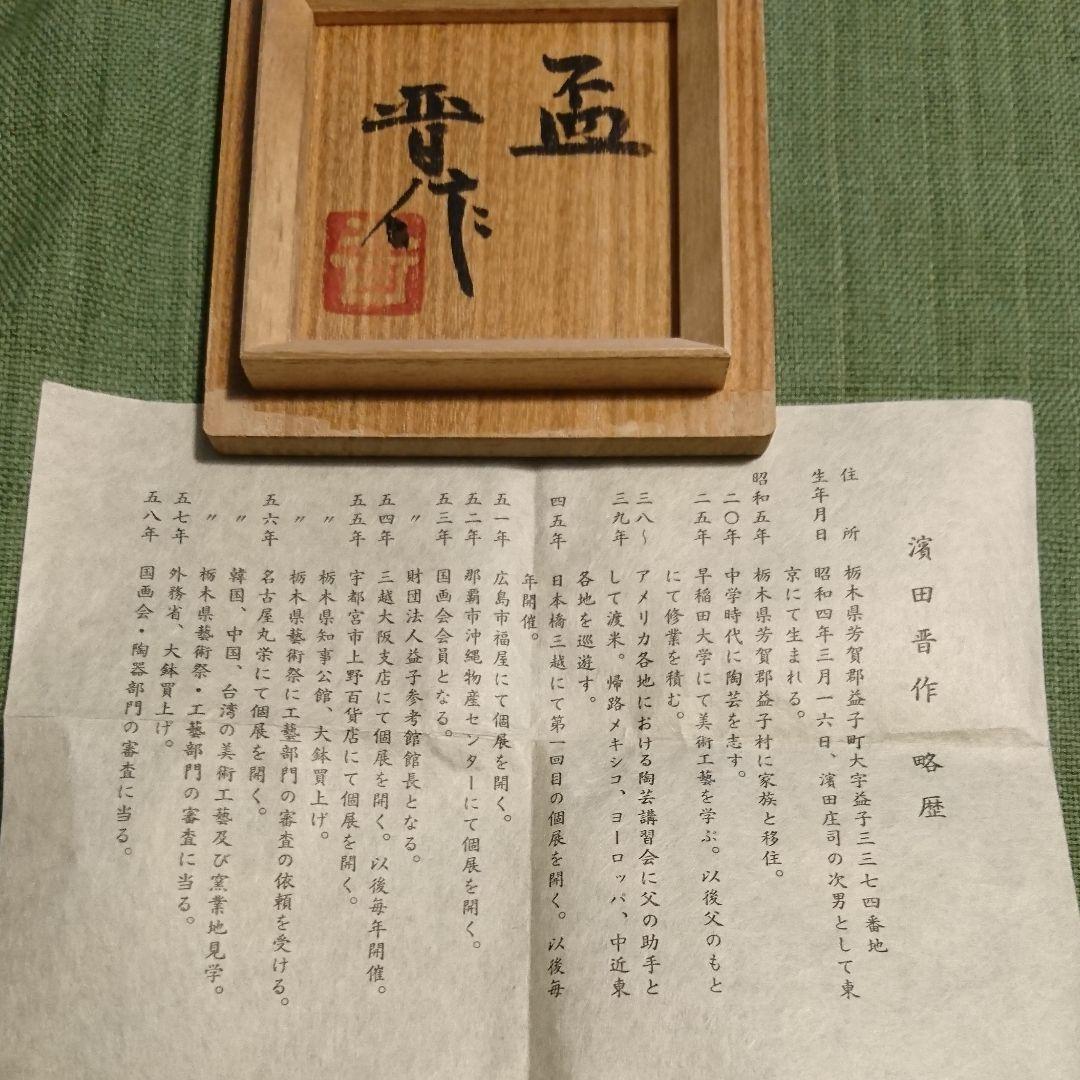 盃
晋作
濱田晋作 略歴
住所 栃木県芳賀郡益子町大字益子三三七四番地
生年月日 昭和四年三月一六日、濱田庄司の次男として東
京にて生まれる。
昭和五年 栃木県芳賀郡益子村に家族と移住。
二〇年 中学時代に陶芸を志す。
二五年 早稲田大学にて美術工藝を学ぶ。以後父のもと
にて修業を積む。
三八〜 アメリカ各地における陶芸講習会に父の助手と
三九年 して渡米。帰路メキシコ、ヨーロッパ、中近東
各地を巡遊す。
四五年 日本橋三越にて第一回目の個展を開く。以後毎
年開催。
五一年 広島市福屋にて個展を開く。
五二年 那覇市沖縄物産センターにて個展を開く。
五三年 国画会会員となる。
〃 財団法人益子参考館館長となる。
五四年 三越大阪支店にて個展を開く。以後毎年開催。
五五年 宇都宮市上野百貨店にて個展を開く。
〃 栃木県知事公館、大鉢買上げ。
〃 栃木県藝術祭に工藝部門の審査の依頼を受ける。
五六年 名古屋丸栄にて個展を開く。
〃 韓国、中国、台湾の美術工藝及び窯業地見学。
〃 栃木県藝術祭・工藝部門の審査に当る。
五七年 外務省、大鉢買上げ。
五八年 国画会・陶器部門の審査に当る。